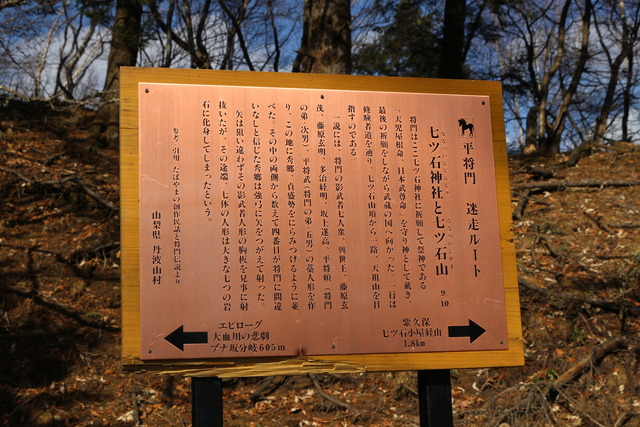 平将門 迷走ルート
七ツ石神社と七ツ石山 9/10
ななついしじんじゃ ななついしやま
将門はここ七ツ石神社に祈願して祭神である
「天児屋根命、日本武尊命」を守り神として戴き、
最後の祈願をしながら武蔵の国へ向かった。一行は
修験者道を辿り、七ツ石山頂から一路、天祖山を目
指すのである。
一説には、将門の影武者七人衆、興世王、藤原玄
茂、藤原玄明、多治経明、坂上遂高、平将頼(将門
の弟・次男)、平将武(将門の弟・五男)の藁人形を作
り、この地に秀郷、貞盛勢をにらみつけるように並
べた。その中の両側から数えて四番目が将門に間違
いなしと信じた秀郷は強弓に矢をつがえて射った。
矢は狙い違わずその影武者人形の胸板を見事に射
抜いたが、その途端、七体の人形は大きな七つの岩
石に化身してしまったという。
参考・引用 たばやまの創作民話と将門伝説より
山梨県 丹波山村
エピローグ
大血川の悲劇
ブナ坂分岐605m
紫久保
七ツ石小屋経由
1.8km